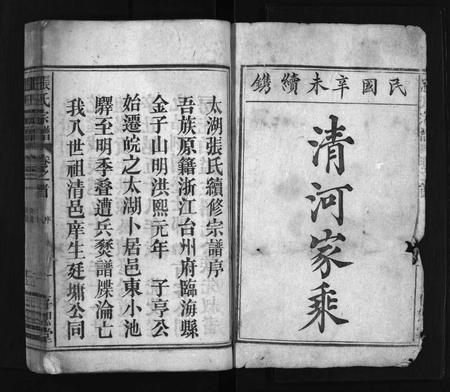 民國辛未續鐫
清河家乘
太湖張氏續修宗譜序
吾族原籍浙江台州府臨海縣
金子山明洪熙元年 子亨公
始遷皖之太湖卜居邑東小池
驛至明季叠遭兵燹譜牒淪亡
我八世祖清邑庠生廷墉公同
張氏宗譜
卷之首
序